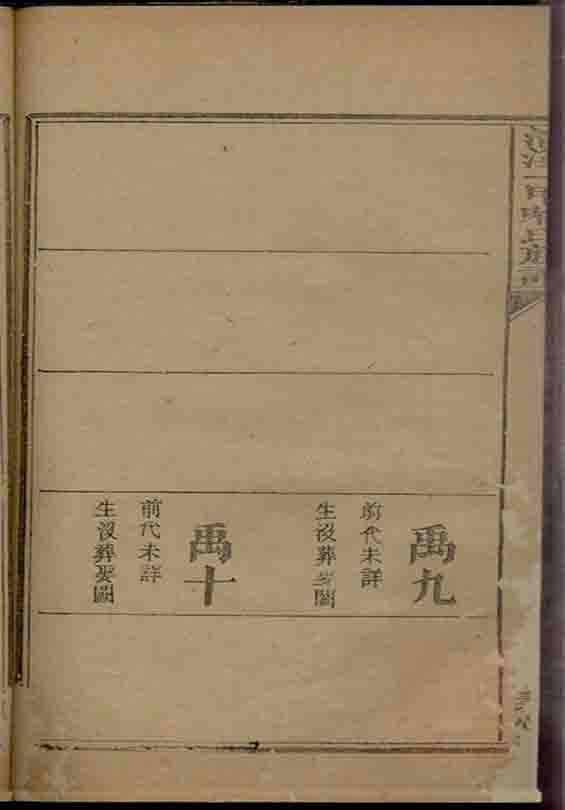 禹九
前代未詳
生沒葬娶闕
禹十
前代未詳
生沒葬娶闕